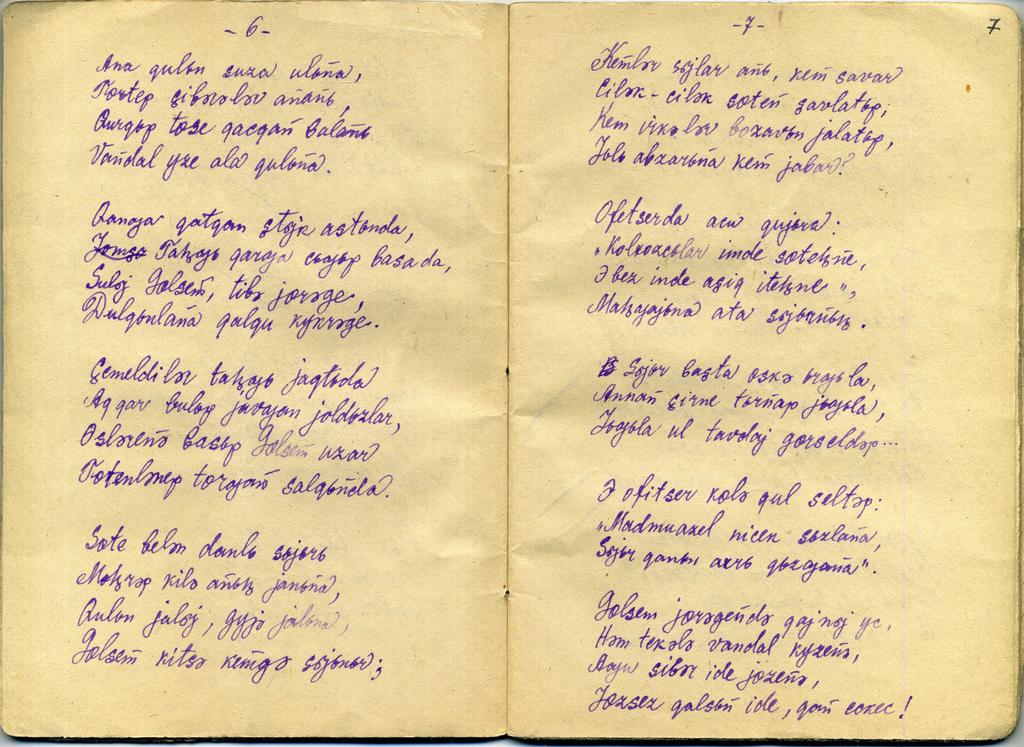 -6-
Ana qulьn suza ulьna,
Tɵrtep çiberələr anañь,
Qurqьp tɵşe qacqan balanь
Vandal yze ala qulьna.
Qanƣa qatqan ştьk astьnda,
Taꞑƣь qarƣa cьƣьp basa da,
Sulьj Gɵlsem, tibə jɵrəge,
Dulqьnlana qalqu kykrəge.
Çemeldilər taꞑƣь jaqtьda
Aq qar bulьp javƣan joldьzlar,
Eslərenə basьp Gɵlsem uzar
Tɵtenlənep torƣan salqьnda.
Sɵte belən danlь sьjьrь
Mɵgrəp kilə anьꞑ janьna,
Qulьn jalьj, gyjə jalьna,
Gɵlsem kitsə kemgə sьjьnьr;
-7-
7
Kemlər sьjlar anь, kem savar
Cilək-cilək sɵten şavlatьp,
Kem irkələr bozavьn jalatьp,
Jɵlь abzarьna kem jabar?
Ofetserda acu qujьra:
„Kolxozcьlar imde sɵteꞑne,
Ə bez inde aşьq iteꞑne",
Maꞑƣajьna ata sьjьrnьꞑ.
Sьjьr başta ɵskə ьrƣьla,
Annan çirne tьrnap jьƣьla,
Jьƣьla ul tavdaj gɵrseldəp...
Ə ofitser kɵlə qul seltəp:
„Madmuazel nicek sɵzlana,
Sьjьr qanьn axrь qьzƣana".
Gɵlsem jɵrəgendə qajnьj yc,
Həm tekələ vandal kyzenə,
Aƣu sibər ide jɵzenə,
Jɵzsez qalsьn ide, qan eckec!